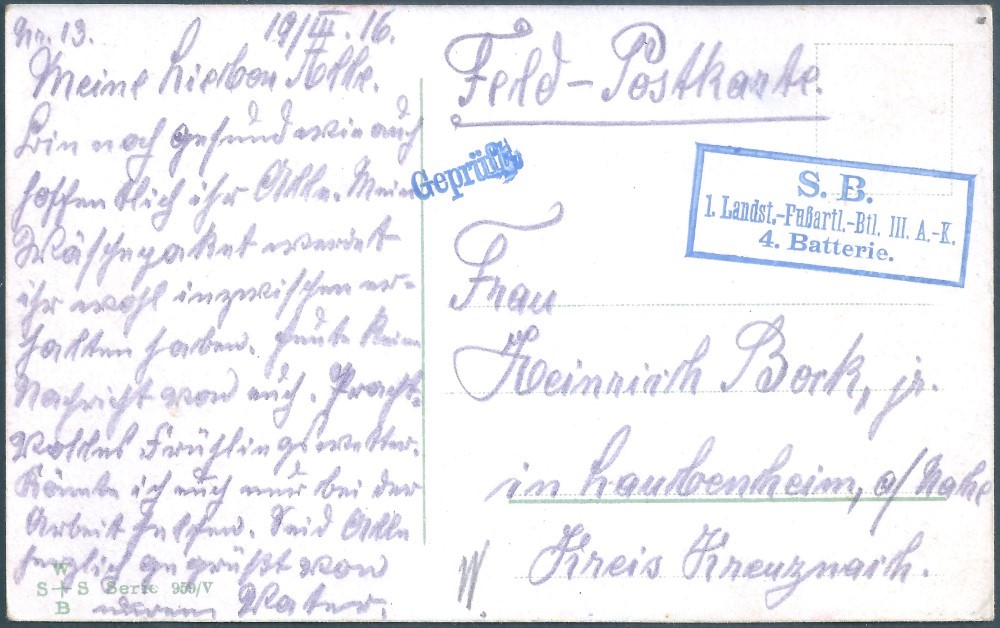 Nr. 13. 19/III.16.
Meine Lieben Alle.
Bin noch gesund wie auch
hoffentlich ihr Alle. Mein
Wäschepaket werdet
ihr wohl inzwischen er-
halten haben. Heute keine
Nachricht von euch. Pracht-
volles Frühlingswetter.
Könnte ich euch nur bei der
Arbeit helfen. Seid Alle
herzlich gegrüßt von
eurem Vater.
W
S+S Serie 959/V
B
Feld-Postkarte.
Geprüft
S. B.
1. Landst.-Fußartl.-Btl. III. A.-K.
4. Batterie.
Frau
Heinrich Bock, jr.
in Laubenheim, a/Nahe
Kreis Kreuznach.